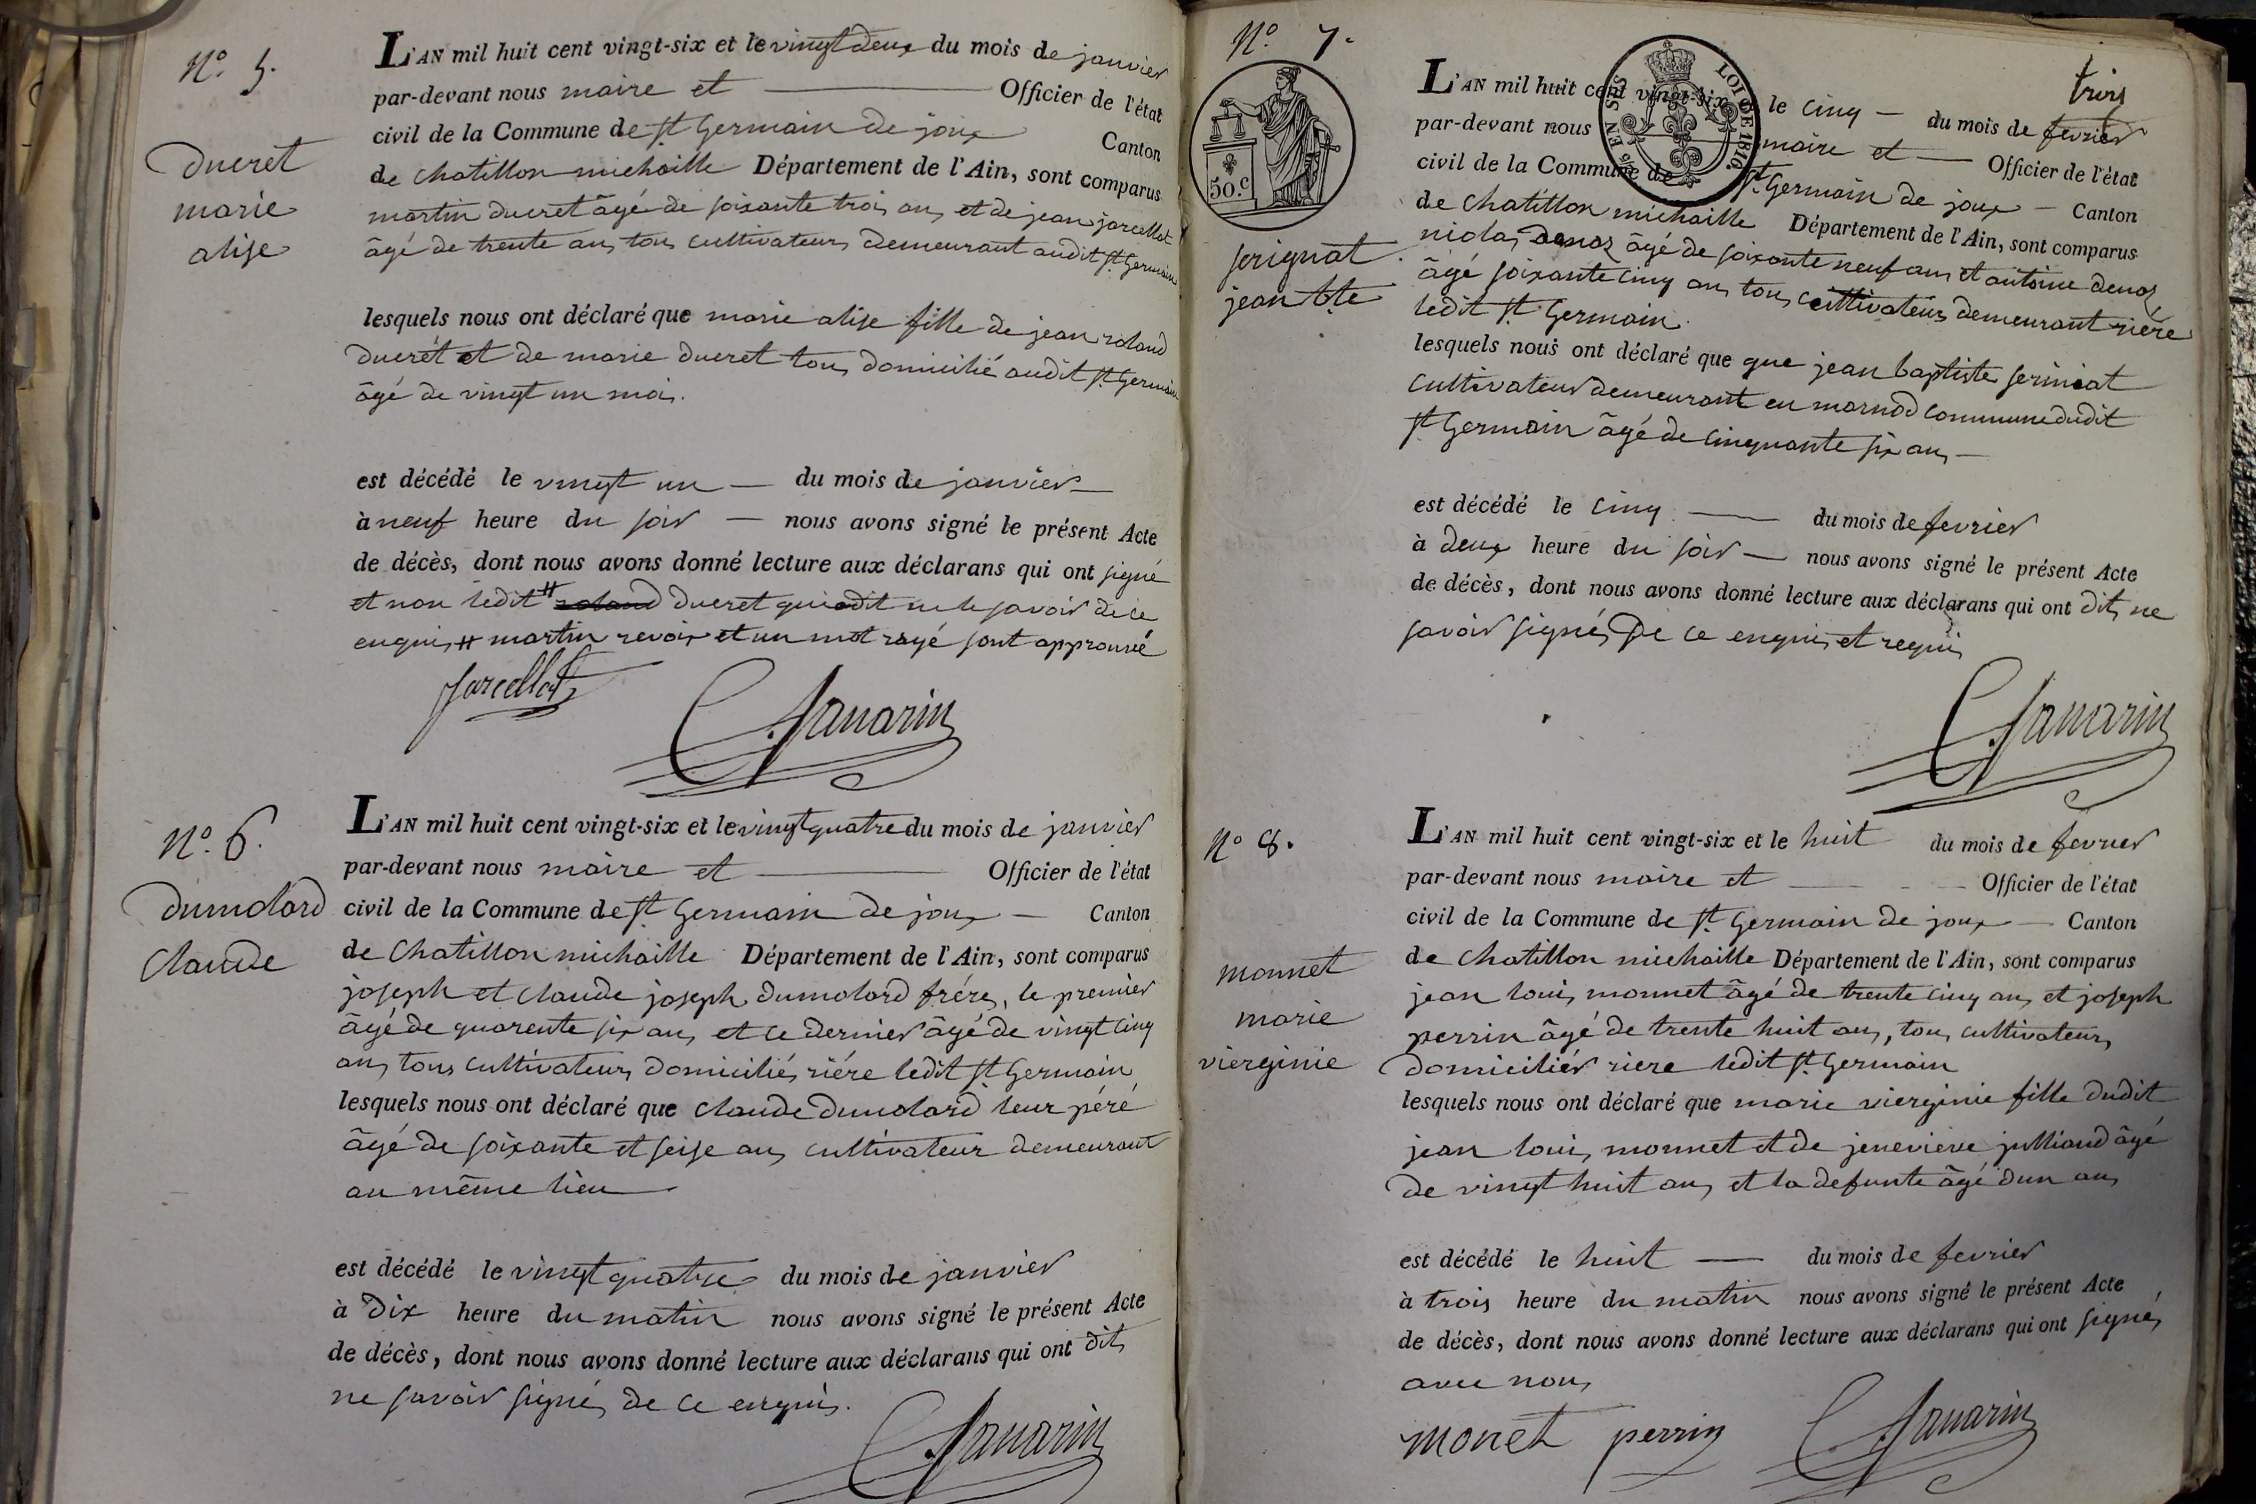 N.o 5.
ducret
marie
alise
L'AN mil huit cent vingt-six et le vingt deux du mois de janvier
par-devant nous maire et Officier de l'état
civil de la Commune de St Germain de joux Canton
de chatillon michaille Département de l'Ain, sont comparus
martin ducret âgé de soixante trois ans et de jean jarcellot
âgé de trente ans tous cultivateurs demeurant audit St Germain
lesquels nous ont déclaré que marie alise fille de jean roland
ducrét et de marie ducret tous domicilié audit St Germain
âgé de vingt un mois.
est décédé le vingt un du mois de janvier
à neuf heure du soir nous avons signé le présent Acte
de décès, dont nous avons donné lecture aux déclarans qui ont signé
et non ledit # roland ducret qui a dit ne le savoir de ce
enquis # martin revoix et un mot rayé sont approuvé
Jarcellot
C. Savarin
N.o 6.
dumolard
claude
L'AN mil huit cent vingt-six et le vingt quatre du mois de janvier
par-devant nous maire et Officier de l'état
civil de la Commune de St Germain de joux Canton
de Chatillon michaille Département de l'Ain, sont comparus
joseph et claude joseph dumolard fréres, le premier
âgé de quarente six ans et ce dernier âgé de vingt cinq
ans tous cultivateurs domiciliés riére ledit St Germain
lesquels nous ont déclaré que claude dumolard leur péré
âgé de soixante et seise ans cultivateur demeurant
au même lieu
est décédé le vingt quatre du mois de janvier
à dix heure du matin nous avons signé le présent Acte
de décès, dont nous avons donné lecture aux déclarans qui ont dits
ne savoir signés de ce enquis.
C. Savarin
N.o 7.
trois
50.c
LOI DE 1816.
EN SUS
serignat
jean bte
L'AN mil huit cent vingt-six le cinq du mois de fevrier
par-devant nous maire et Officier de l'état
civil de la Commune de St Germain de joux Canton
de Chatillon michaille Département de l'Ain, sont comparus
nicolas denoz âgé de soixante neuf ans et antoine denoz
âgé soixante cinq ans tous cultivateurs demeurant riére
ledit St Germain.
lesquels nous ont déclaré que que jean baptiste seriniat
cultivateur demeurant en marnod commune dudit
St Germain âgé de cinquante six ans
est décédé le cinq du mois de fevrier
à deux heure du soir nous avons signé le présent Acte
de décès, dont nous avons donné lecture aux déclarans qui ont dits ne
savoir signés De ce enquis et requis
C. Savarin
N.o 8.
monnet
marie
vierginie
L'AN mil huit cent vingt-six et le huit du mois de fevrier
par-devant nous maire et Officier de l'état
civil de la Commune de St Germain de joux Canton
de Chatillon michaille Département de l'Ain, sont comparus
jean louis monnet âgé de trente cinq ans et joseph
perrin âgé de trente huit ans, tous cultivateurs
domiciliér riere ledit St Germain
lesquels nous ont déclaré que marie vierginie fille dudit
jean louis monnet et de jenevieve julliand âgé
de vingt huit ans et la defunte âgé d'un ans
est décédé le huit du mois de fevrier
à trois heure du matin nous avons signé le présent Acte
de décès, dont nous avons donné lecture aux déclarans qui ont signés
avec nous
monet perrin C. Savarin